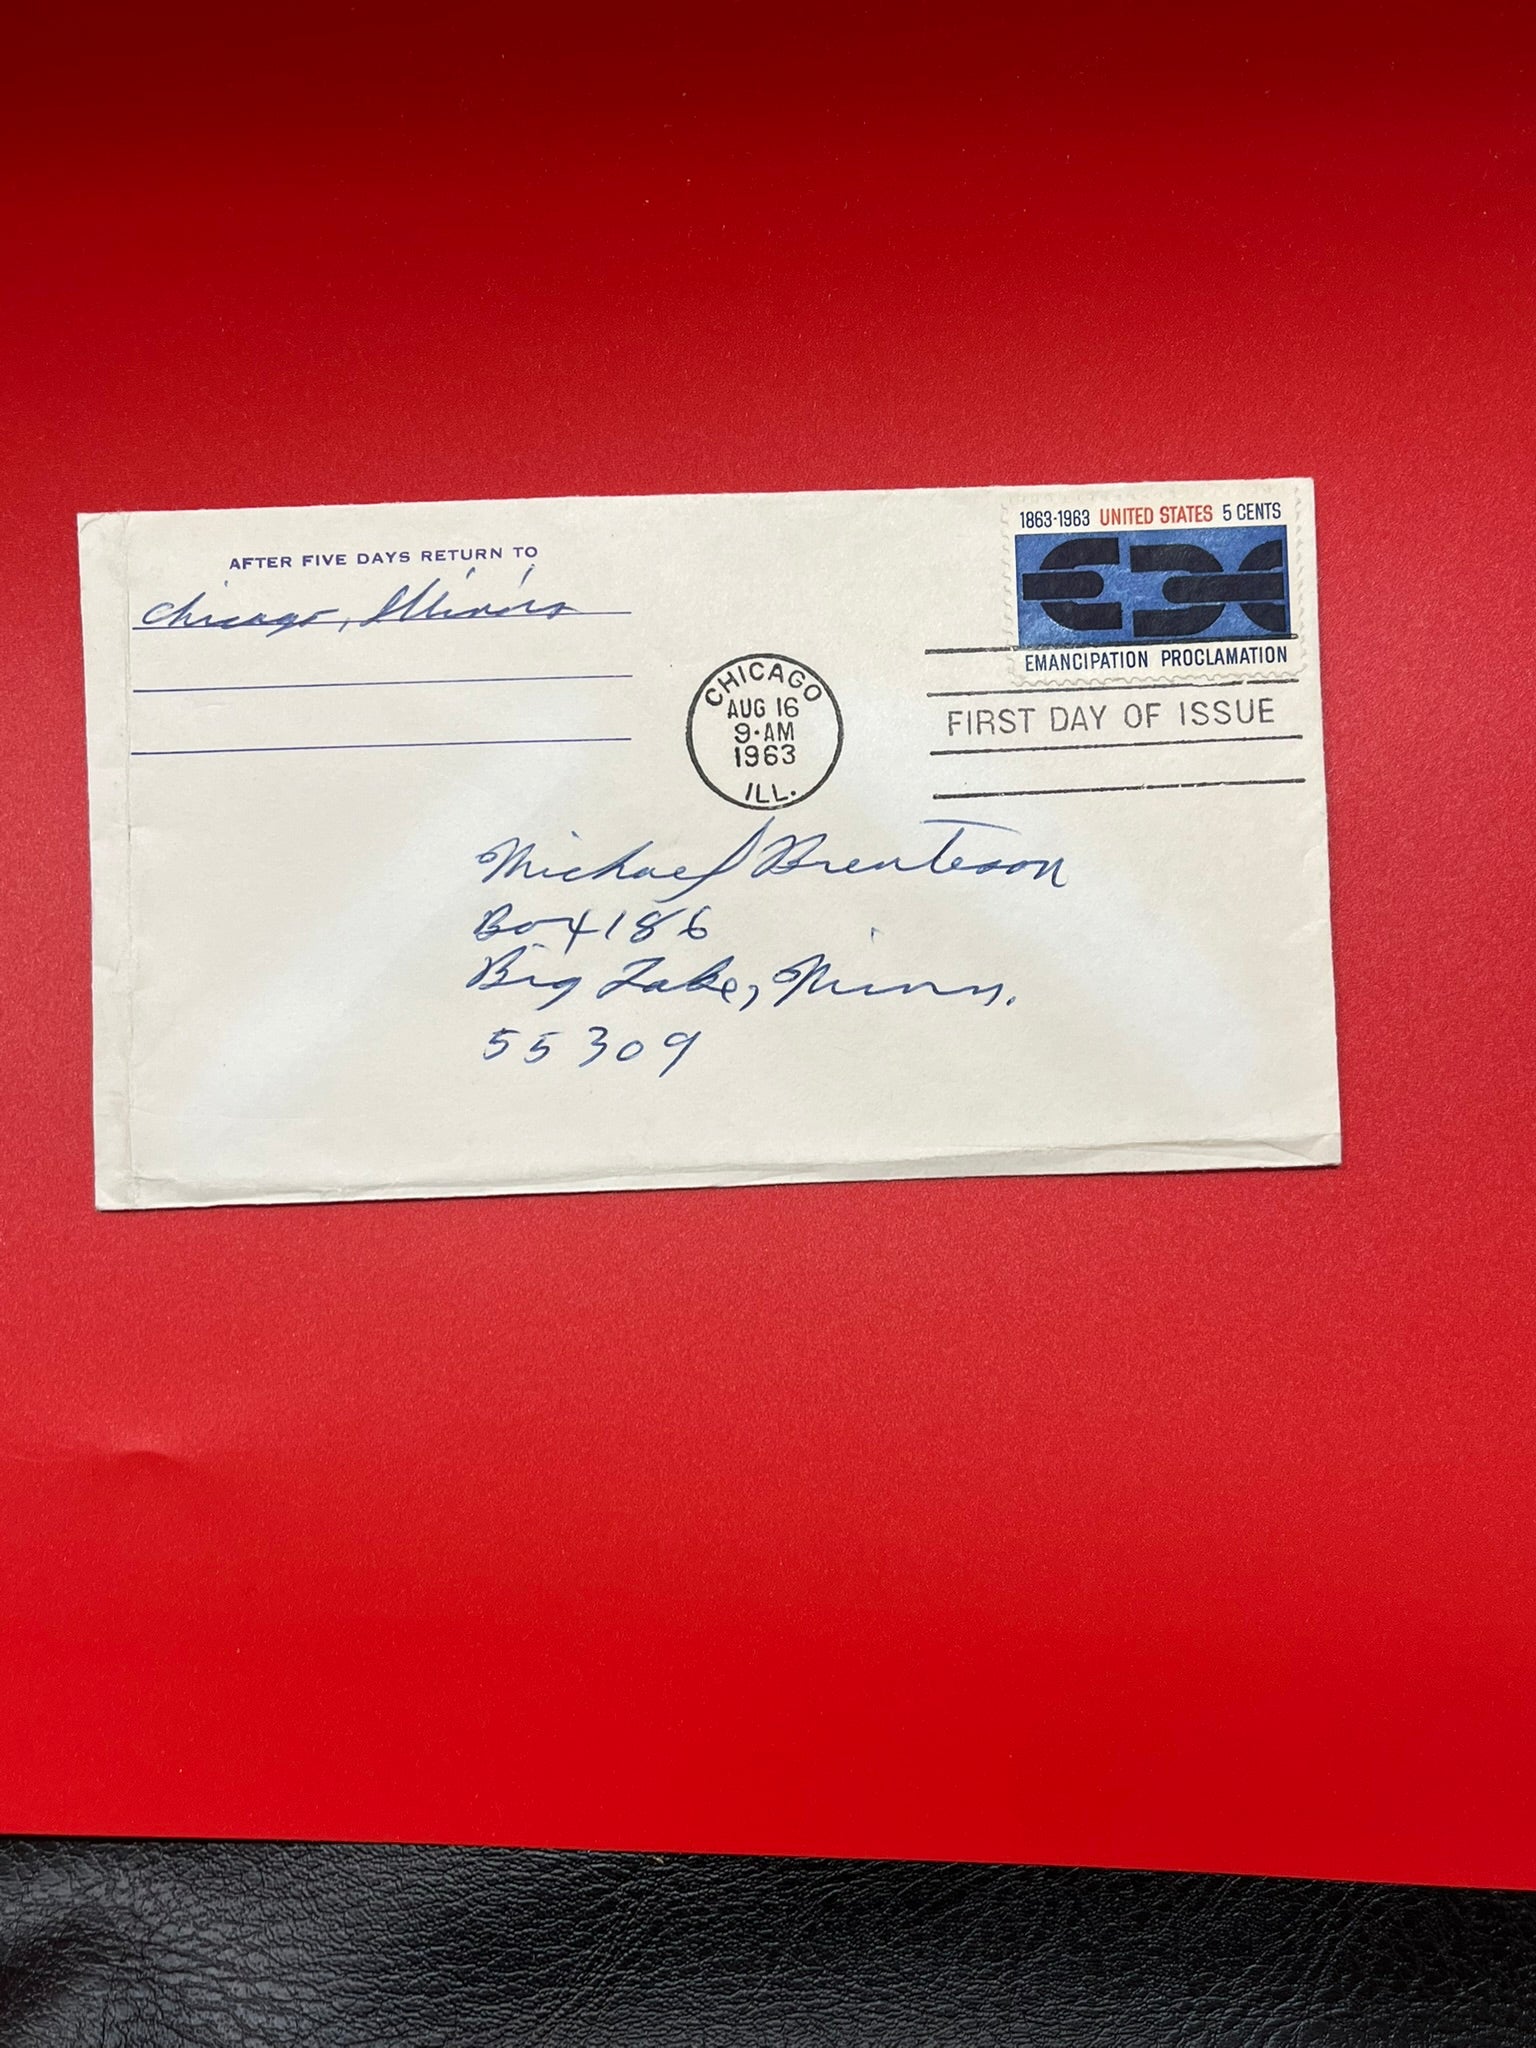 AFTER FIVE DAYS RETURN TO
Chicago, Illinois
1863-1963 UNITED STATES 5 CENTS
EMANCIPATION PROCLAMATION
CHICAGO
AUG 16
9·AM
1963
ILL.
FIRST DAY OF ISSUE
Michael Brenteson
Box 186
Big Lake, Minn.
55309